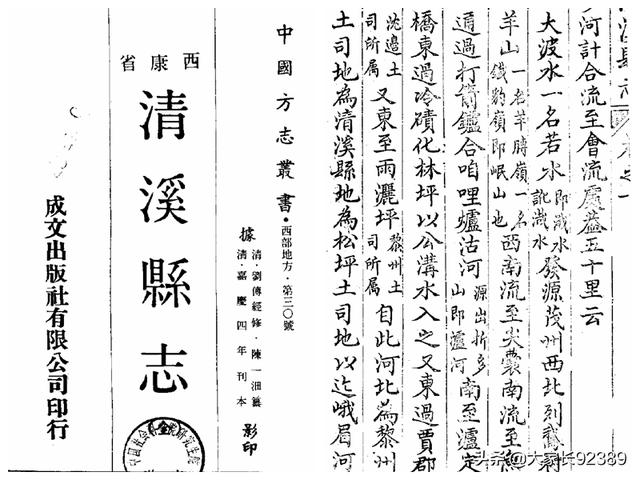 中國方志叢書·西部地方·第三〇號
據
清·劉傳經修·陳一沺纂
清·嘉慶四年刊本
影印
西康省
清溪縣志
成文出版社有限公司印行
河計合流至會流處蓋五十里云
大波水一名若水
發源茂州西北列鵝
羊山
一名羊膊嶺一名
鐵豹嶺即岷山也
西南流至尖製南流至
通過打箭鑪合咱哩爐沽河
源出折多
山即瀘河
南至瀘定
橋東過冷磧化林坪以公溝水入之又東過賈郡
沈邊土
司所屬
又東至雨灑坪
黎州土
司所屬
自此河北為黎州
土司地為清溪縣地為松坪土司地以迄峨眉河
头条@大家长92389